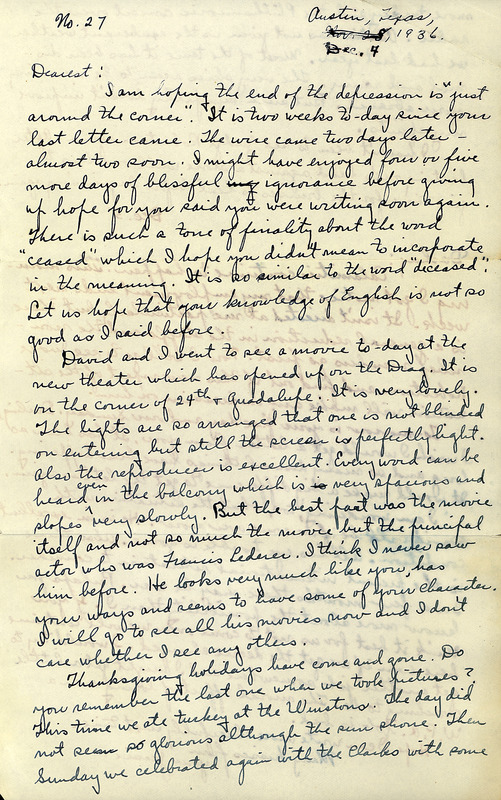 No. 27
Austin, Texas,
Nov. 28, 1936.
Dec. 4
Dearest:
I am hoping the end of the depression is "just
around the corner". It is two weeks to-day since your
last letter came. The wire came two days later –
almost two soon. I might have enjoyed four or five
more days of blissful ignorance before giving
up hope for you said you were writing soon again.
There is such a tone of finality about the word
"ceased" which I hope you didn't mean to incorporate
in the meaning. It is so similar to the word "deceased".
Let us hope that your knowledge of English is not so
good as I said before.
David and I went to see a movie to-day at the
new theater which has opened up on the Drag. It is
on the corner of 24th & Guadalupe. It is very lovely.
The lights are so arranged that one is not blinded
on entering but still the screen is perfectly light.
Also the reproducer is excellent. Every word can be
heard even in the balcony which is very spacious and
slopes very slowly. But the best part was the movie
itself and not so much the movie but the principal
actor who was Francis Lederer. I think I never saw
him before. He looks very much like you, has
your ways and seems to have some of your character.
I will go to see all his movies now and I don't
care whether I see any others.
Thanksgiving holidays have come and gone. Do
you remember the last one when we took pictures?
This time we ate turkey at the Winstons. The day did
not seem so glorious although the sun shone. Then
Sunday we celebrated again with the Clarks with some